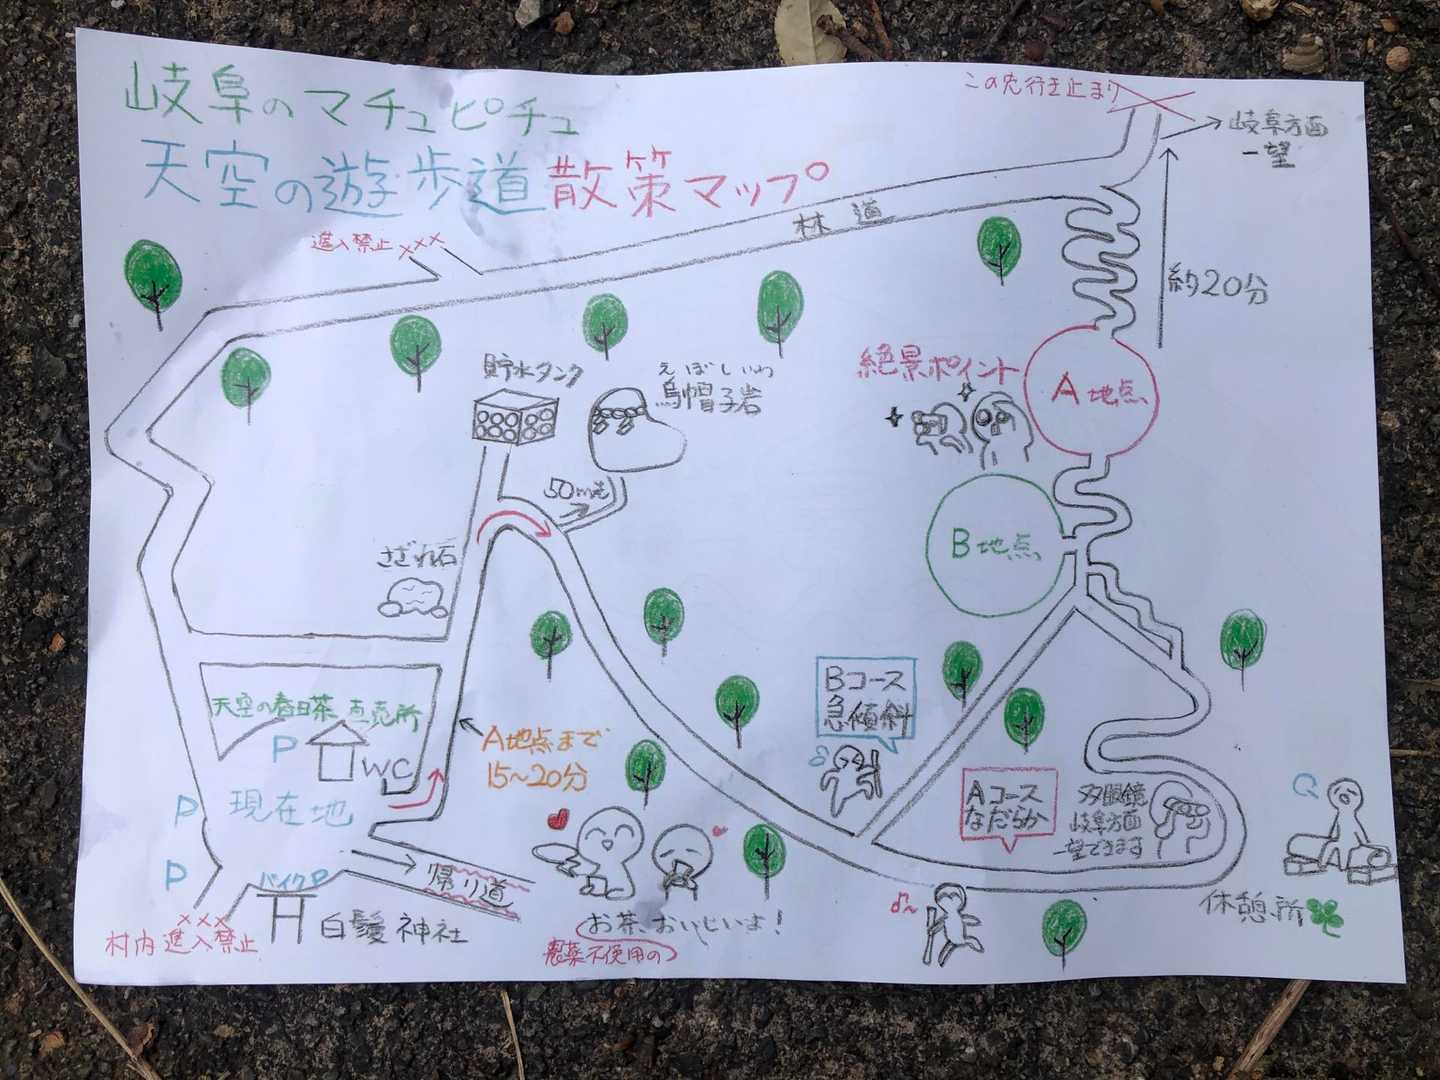 岐阜のマチュピチュ
天空の遊歩道散策マップ
この先行き止まり
岐阜方面
一望
進入禁止
林道
約20分
貯水タンク
えぼしいわ
烏帽子岩
絶景ポイント
A地点
50m先
B地点
さざれ石
天空の春日茶 直売所
P
WC
A地点まで
15〜20分
Bコース
急傾斜
Aコース
なだらか
双眼鏡
岐阜方面
一望できます
P
現在地
P
バイクP
帰り道
休憩所
村内進入禁止
白鬚神社
お茶、おいしいよ!
農薬不使用の